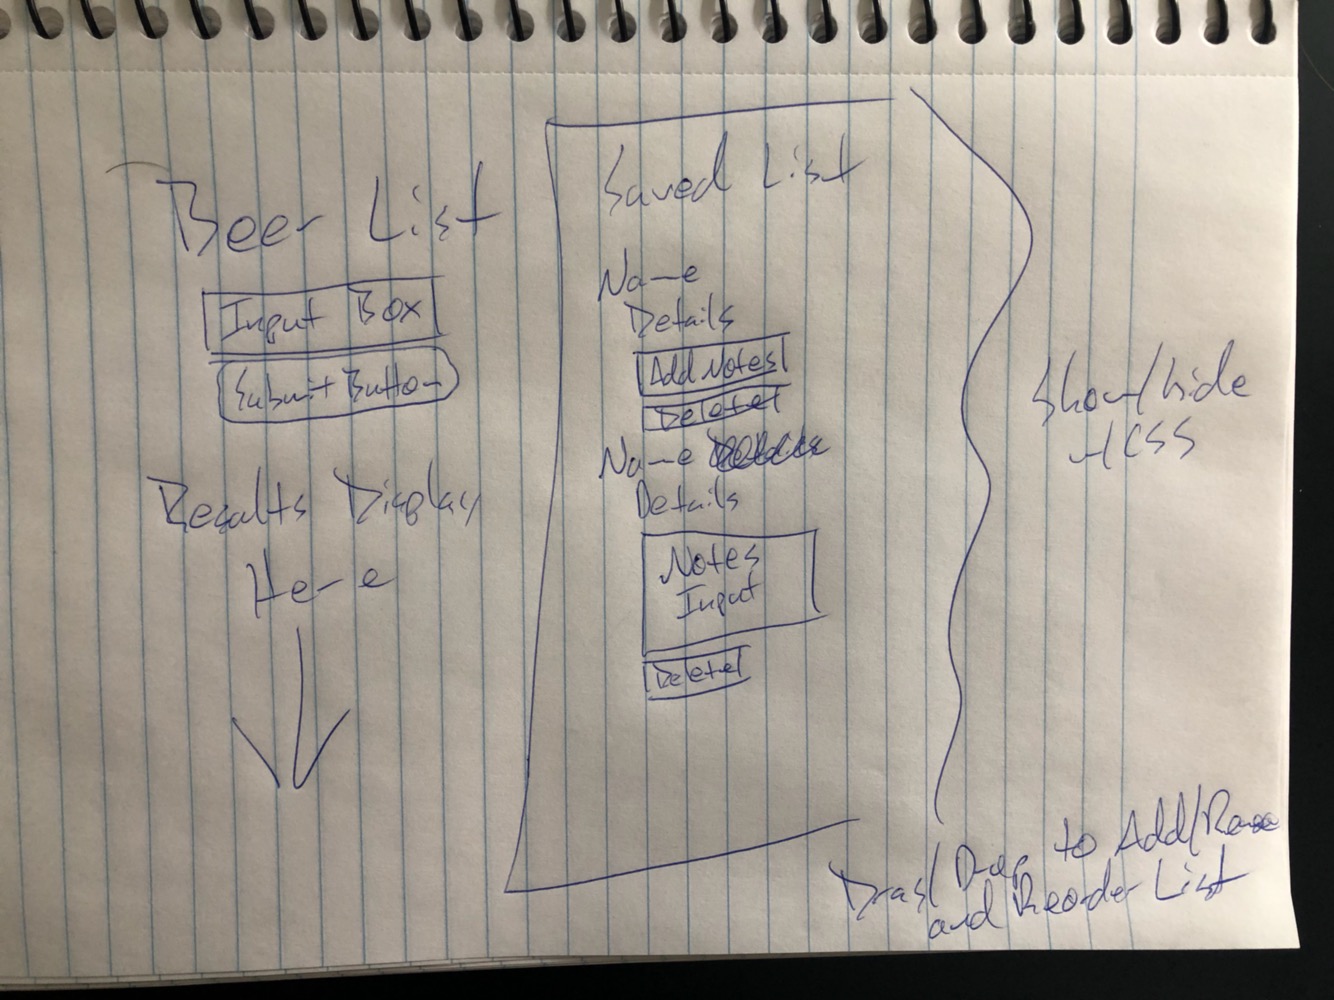 Beer List
Input Box
Submit Button
Results Display
Here
Saved List
Name
Details
Add Notes
Delete
Name
Details
Notes
Input
Delete
Show/hide
w/CSS
Drag/Drop to Add/
and Reorder List